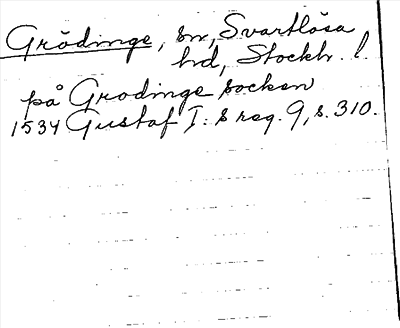 Grödinge, sn, Svartlösa
hd, Stockh. l.
på Grodinge socken
1534 Gustaf I:s reg. 9, s. 310.